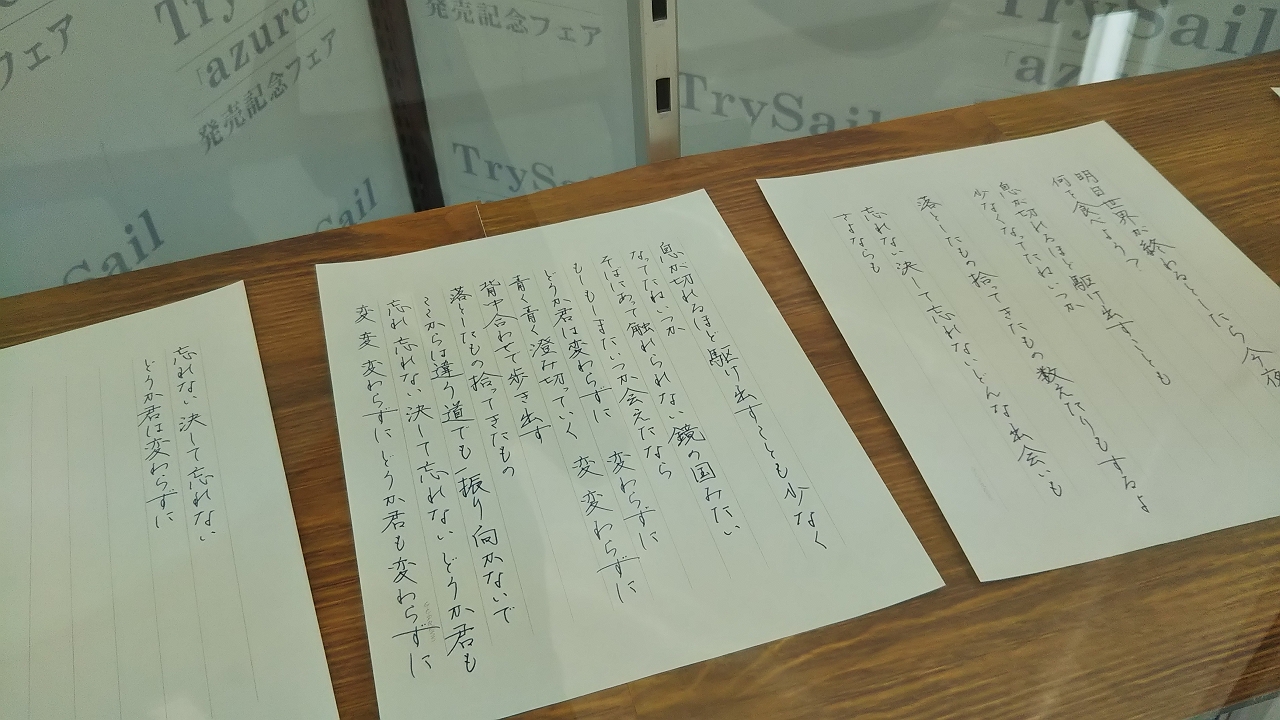 TrySail
「azure」
発売記念フェア
フェア
発売記念フェア
TrySail
TrySail
明日世界が終わるとしたら今夜
何を食べよう?
息が切れるほど駆け出すことも
少なくなってたねいつか
落としたもの拾ってきたもの数えたりもするよ
忘れない決して忘れないどんな出会いも
さよならも
息が切れるほど駆け出すことも少なく
なってたねいつか
そばにあって触れられない鏡の国みたい
もしもしまたいつか会えたなら
どうか君は変わらずに 変わらずに
青く青く澄み切っていく 変 変わらずに
背中合わせで歩き出す
落としたもの拾ってきたもの
ここからは違う道でも 振り向かないで
忘れ忘れない決して忘れないどうか君も
変変変わらずにどうか君も変わらずに
忘れない決して忘れない
どうか君は変わらずに